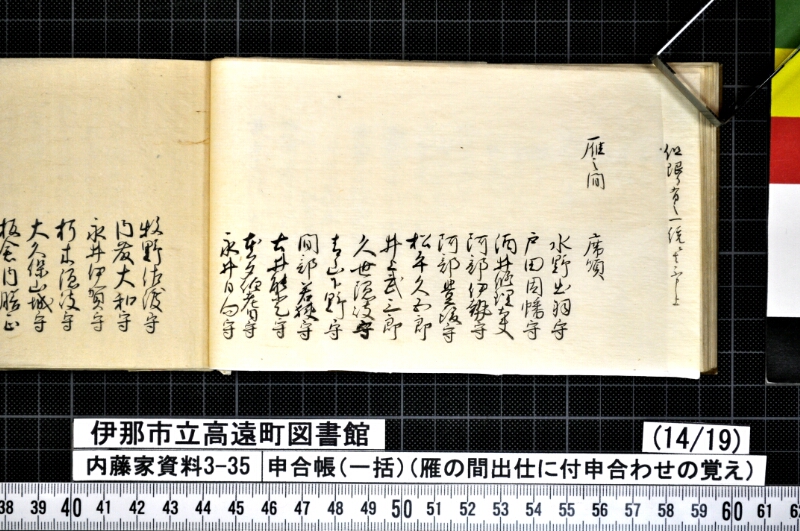 雁之間
席順
水野出羽守
戸田因幡守
酒井修理大夫
阿部伊勢守
阿部豊後守
松平久五郎
井上武三郎
久世隠岐守
青山下野守
間部若狭守
土井能登守
本多丹後守
永井日向守
牧野佐渡守
内藤大和守
永井伊賀守
朽木隠岐守
大久保山城守
板倉内膳正
伊那市立高遠町図書館
(14/19)
内藤家資料3-35
申合帳(一括)(雁の間出仕に付申合わせの覚え)
38 39 40 41 42 43 44 45 46 47 48 49 50 51 52 53 54 55 56 57 58 59 60 61